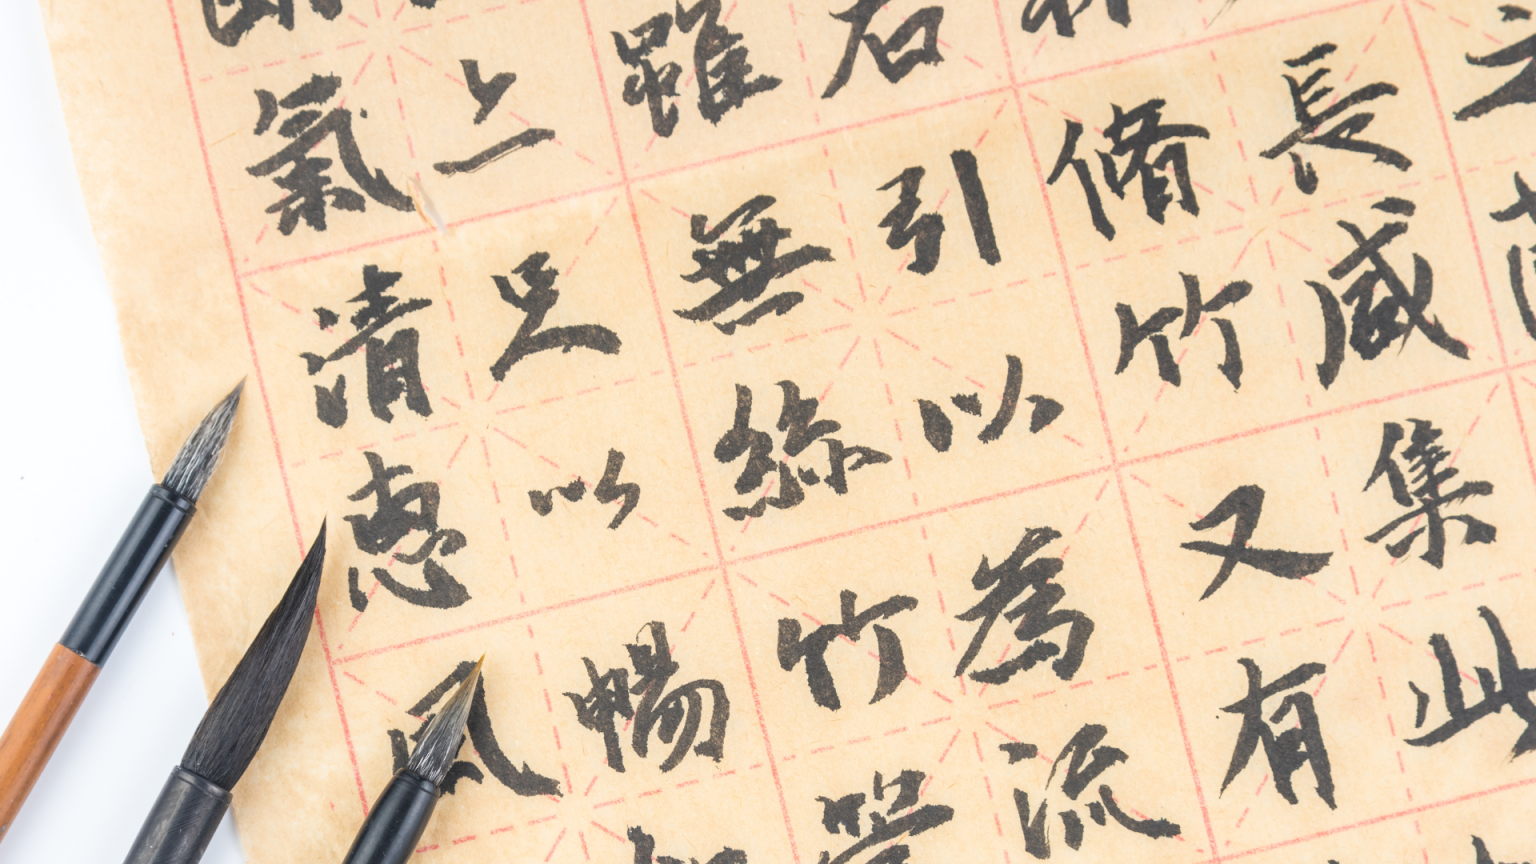 長咸集此
脩竹又有
右引以為流
雖無絲竹管
上足以暢
氣清惠風